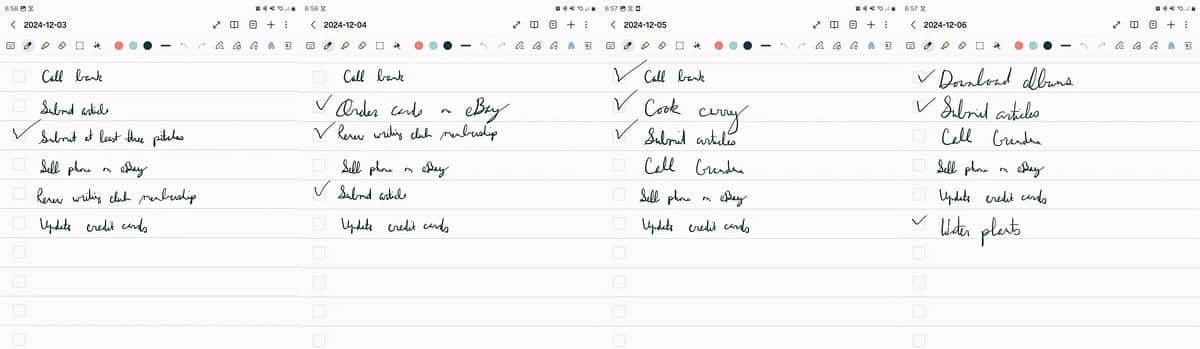 6:58
2024-12-03
Call bank
Submit article
Submit at least three pitches
Sell phone on eBay
Renew writing club membership
Update credit cards
6:58
2024-12-04
Call bank
Order cards on eBay
Renew writing club membership
Sell phone on eBay
Submit article
Update credit cards
6:57
2024-12-05
Call bank
Cook curry
Submit articles
Call Grandma
Sell phone on eBay
Update credit cards
6:57
2024-12-06
Download albums
Submit articles
Call Grandma
Sell phone on eBay
Update credit cards
Water plants